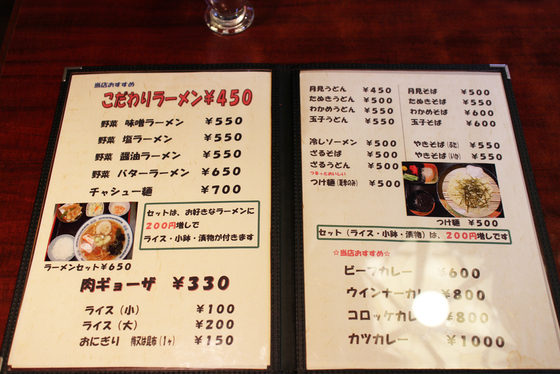 当店おすすめ
こだわりラーメン¥450
野菜 味噌ラーメン ¥550
野菜 塩ラーメン ¥550
野菜 醤油ラーメン ¥550
野菜 バターラーメン ¥650
チャシュー麺 ¥700
セットは、お好きなラーメンに
200円増しで
ライス・小鉢・漬物が付きます
ラーメンセット¥650
肉ギョーザ ¥330
ライス(小) ¥100
ライス(大) ¥200
おにぎり 梅又は昆布(1ヶ) ¥150
月見うどん ¥450
たぬきうどん ¥500
わかめうどん ¥550
玉子うどん ¥550
冷しソーメン ¥500
ざるそば ¥500
ざるうどん ¥500
つるーっとおいしい!
つけ麺(夏季のみ) ¥500
月見そば ¥500
たぬきそば ¥550
わかめそば ¥600
玉子そば ¥600
やきそば(ぶた) ¥550
やきそば(いか) ¥550
つけ麺 ¥500
セット(ライス・小鉢・漬物)は、200円増しです
☆当店おすすめ☆
ビーフカレー ¥600
ウインナーカレー ¥800
コロッケカレー ¥800
カツカレー ¥1000